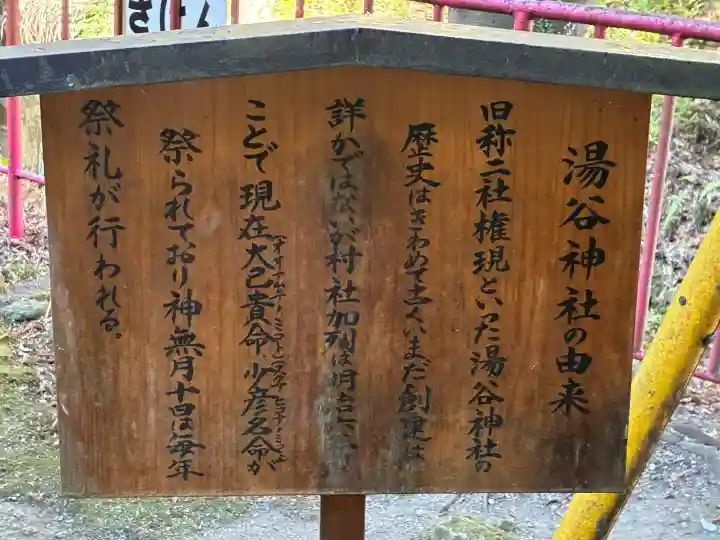 湯谷神社の由来
旧称二社権現といった湯谷神社の
歴史はきわめて古くいまだ創建は
詳かではないが村社加列は明治六年の
ことで現在大己貴命少彦名命が
祭られており神無月十四は毎年
祭礼が行われる。